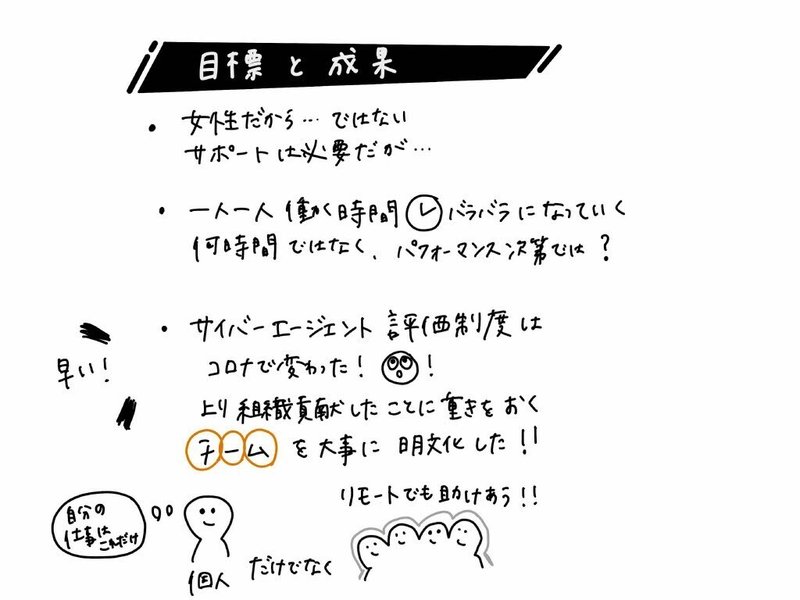 目標と成果
・女性だから…ではない
サポートは必要だが…
・一人一人働く時間バラバラになっていく
何時間ではなく、パフォーマンス次第では?
・サイバーエージェント評価制度は
早い!
コロナで変わった!!
より組織貢献したことに重きをおく
チームを大事に明文化した!!
リモートでも助けあう!!
自分の
仕事は
これだけ
個人だけでなく